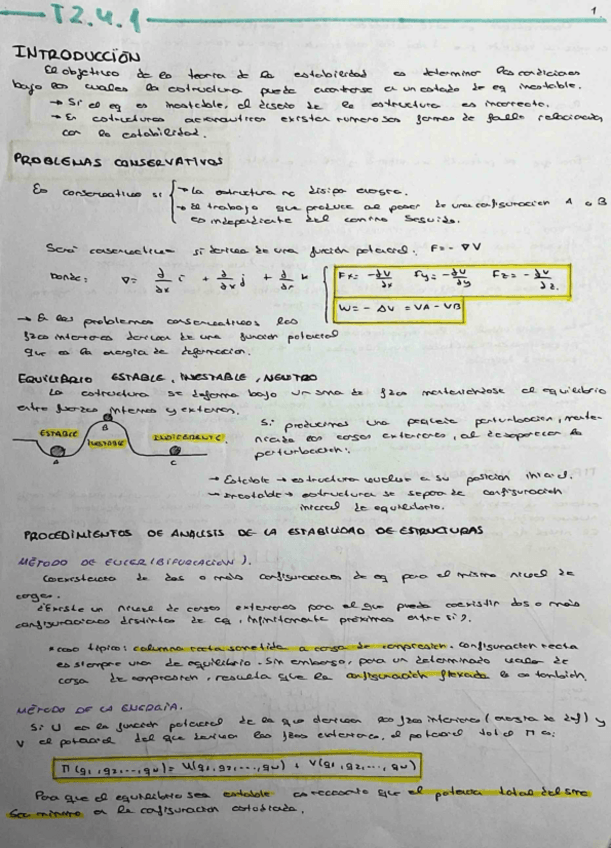 T2.4.1
1
INTRODUCCIÓN
El objetivo de la teoria de la estabilidad es determinar las condiciones
bajo las cuales la estructura puede encontrarse en un estado de eq inestable.
→ Si el eq es inestable, el diseño de la estructura es incorrecto.
→ En estructuras aeronauticas existen numerosas formas de fallo relacionadas
con la estabilidad.
PROBLEMAS CONSERVATIVOS
Es conservativo si → La estructura no disipa energia.
→ El trabajo que produce al pasar de una configuracion A a B
es independiente del camino seguido.
Será conservativo si deriva de una función potencial. F = - ∇V
Donde: ∇ = ∂/∂x i + ∂/∂y j + ∂/∂z k
Fx = -∂V/∂x Fy = -∂V/∂y Fz = -∂V/∂z.
W = - ΔV = VA - VB
→ En los problemas conservativos las
fzas interiores derivan de una funcion potencial
que es la energia de deformacion.
EQUILIBRIO ESTABLE, INESTABLE, NEUTRO
La estructura se deforma bajo un sma de fzas manteniendose el equilibrio
entre fuerzas internas y externas.
ESTABLE
A
B
INESTABLE
INDIFERENTE
C
Si producimos una pequeña perturbacion, mante-
niendo las cargas exteriores, al desaparecer la
perturbacion:
→ Estable → estructura vuelve a su posicion inicial.
→ Inestable → estructura se separa de configuracion
inicial de equilibrio.
PROCEDIMIENTOS DE ANALISIS DE LA ESTABILIDAD DE ESTRUCTURAS
MÉTODO DE EULER (BIFURCACIÓN).
Coexistencia de dos o más configuraciones de eq para el mismo nivel de
carga.
¿Existe un nivel de cargas exteriores para el que pueda coexistir dos o más
configuraciones distintas de eq, infinitamente próximas entre sí?.
* caso típico: columna recta sometida a carga de compresión. Configuracion recta
es siempre una de equilibrio. Sin embargo, para un determinado valor de
carga de compresion, resulta que la configuración flexada lo es tambien.
MÉTODO DE LA ENERGÍA.
Si U es la función potencial de la que derivan las fzas interiores (energia de def) y
V el potencial del que derivan las fzas exteriores, el potencial total Π es:
Π (q1, q2, ..., qN) = U(q1, q2, ..., qN) + V(q1, q2, ..., qN)
Para que el equilibrio sea estable es necesario que el potencial total del sma
sea mínimo en la configuracion estudiada.